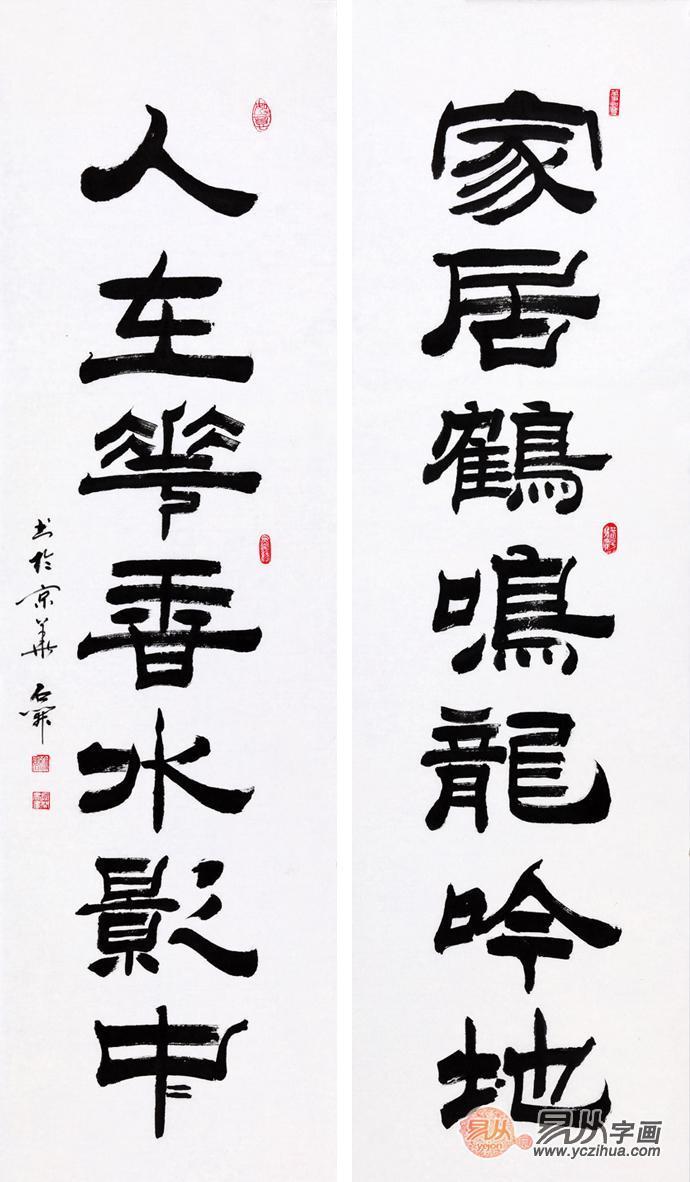 家居鶴鳴龍吟地
人在華香水影中
书於京華 石開
易从
yejon
易从字画
www.yczihua.com